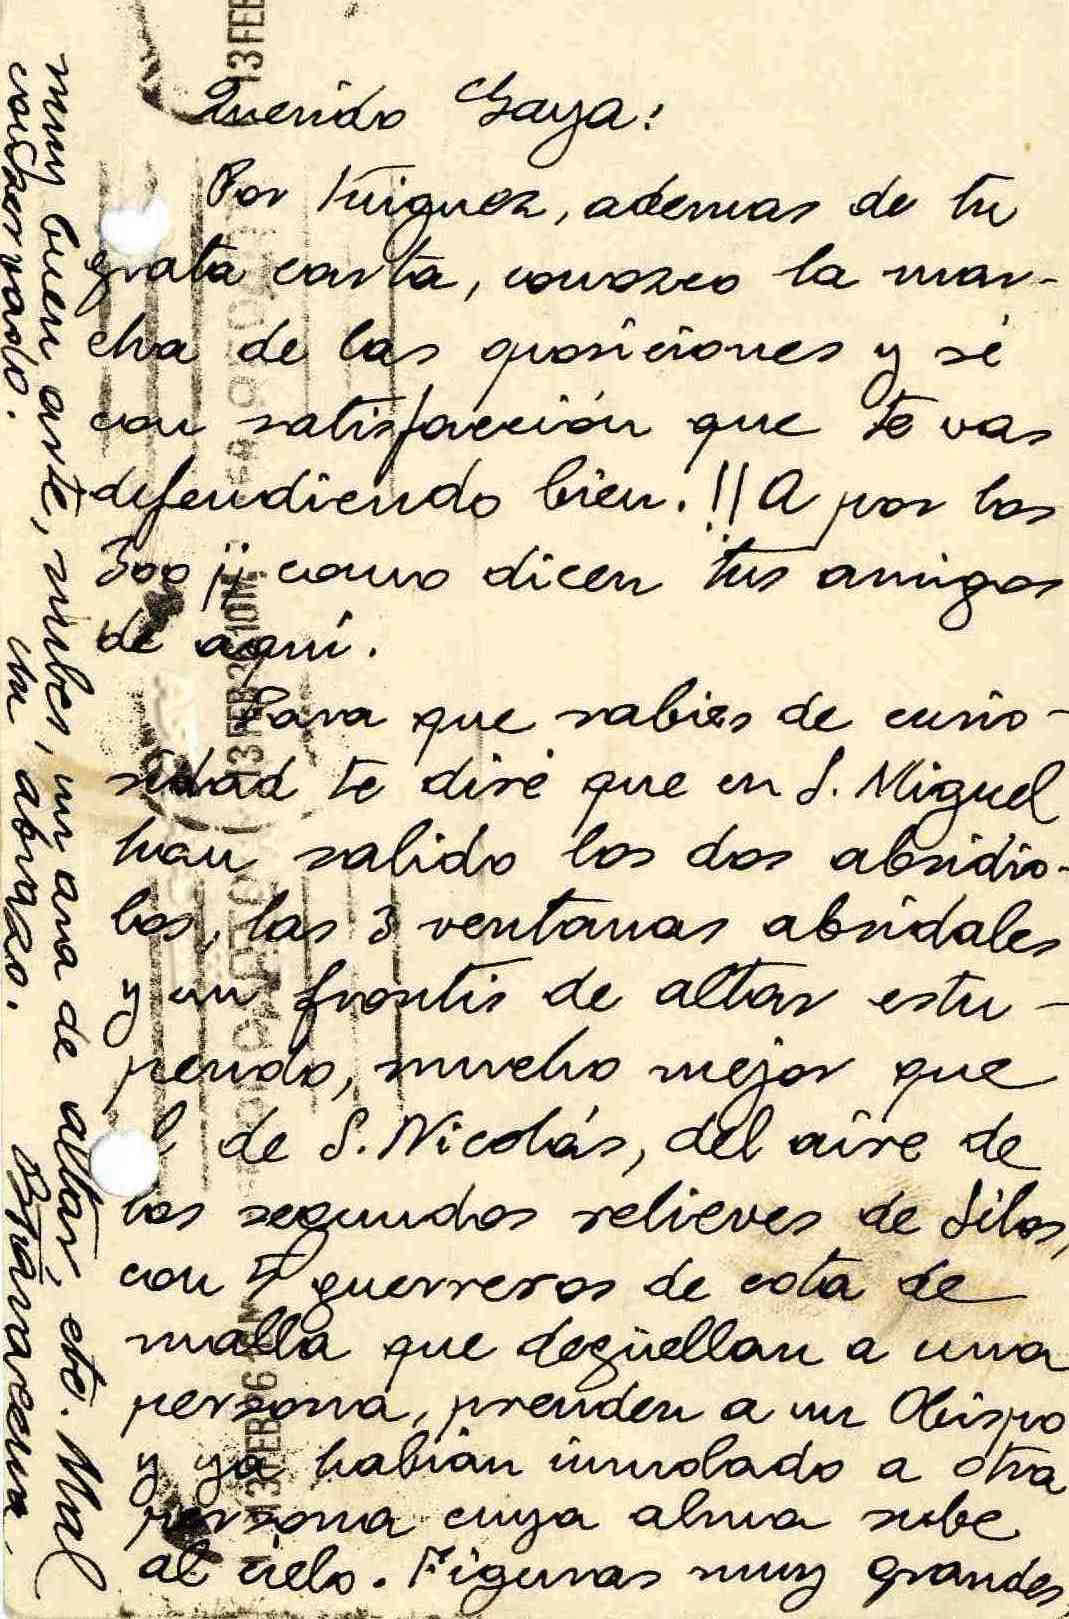 Querido Gaya:
Por Iñiguez, ademas de tu
grata carta, conozco la mar-
cha de las oposiciones y sé
con satisfacción que te vas
defendiendo bien. !! A por los
300 ¡¡ como dicen tus amigos
de aqui.
Para que rabies de curio-
sidad te diré que en S. Miguel
han salido los dos absidio-
los, las 3 ventanas absidales
y un frontis de altar estu-
pendo, mucho mejor que
el de S. Nicolás, del aire de
los segundos relieves de Silos,
con 4 guerreros de cota de
malla que degüellan a una
persona, prenden a un Obispo
y ya habian inmolado a otra
persona cuya alma sube
al cielo. Figuras muy grandes,
muy buen arte, nubes, un ara de altar, etc. Mal
conservado. Un abrazo.
13 FEB
13 FEB 26 10M
13 FEB 26